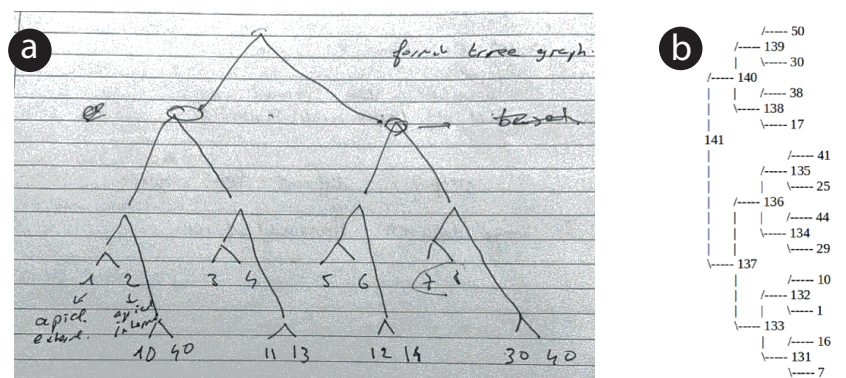 a
found tree graph.
1 2 3 4 5 6 7 8
apical apical
extern. intern.
10 40 11 13 12 14 30 40
b
/----- 50
/----- 139
| \----- 30
/----- 140
| | /----- 38
| \----- 138
| \----- 17
141
| /----- 41
| /----- 135
| | \----- 25
| /----- 136
| | | /----- 44
| | \----- 134
| | \----- 29
\----- 137
| /----- 10
| /----- 132
| | \----- 1
\----- 133
| /----- 16
\----- 131
\----- 7